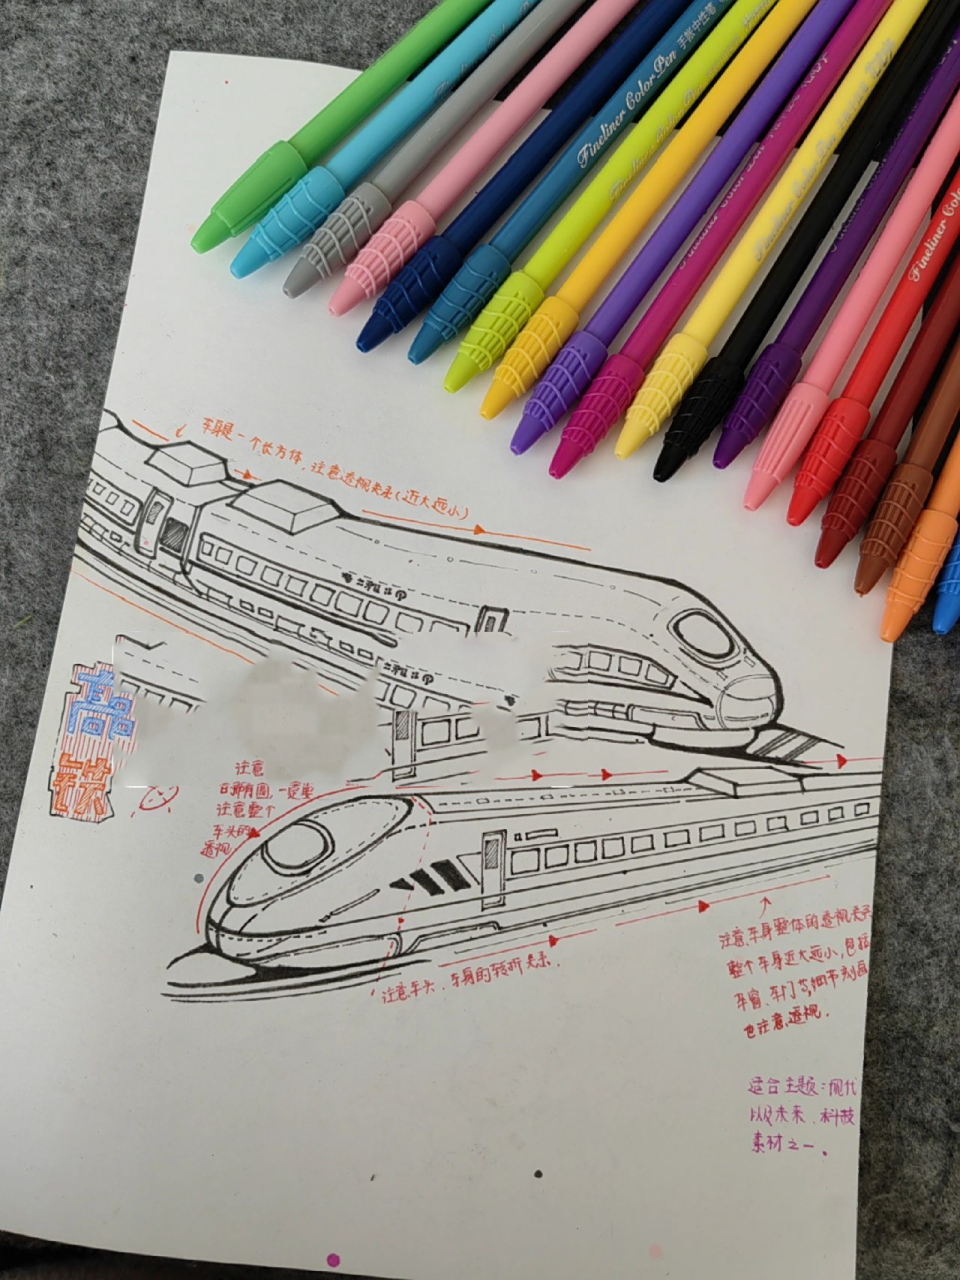 手帐中性笔
Fineliner Color Pen
Fineliner Color Pen
Fineliner Color Pen
Fineliner Colo
车身是一个长方体,注意透视关系(近大远小)
高
铁
注意
注意整个
车头的
透视
注意车头、车身的转折关系.
注意车身整体的透视关系
整个车身近大远小,包括
车窗、车门等,细节刻画
也注意透视.
适合主题:现代
以及未来、科技
素材之一。